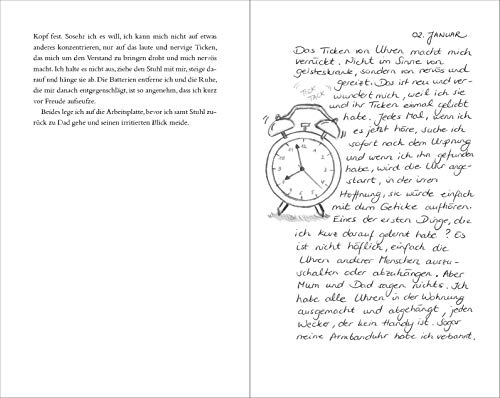 Kopf fest. Sosehr ich es will, ich kann mich nicht auf etwas
anderes konzentrieren, nur auf das laute und nervige Ticken,
das mich um den Verstand zu bringen droht und mich nervös
macht. Ich halte es nicht aus, ziehe den Stuhl mit mir, steige dar-
auf und hänge sie ab. Die Batterien entferne ich und die Ruhe,
die mir danach entgegenschlägt, ist so angenehm, dass ich kurz
vor Freude aufseufze.
Beides lege ich auf die Arbeitsplatte, bevor ich samt Stuhl zu-
rück zu Dad gehe und seinen irritierten Blick meide.
02. JANUAR
Das Ticken von Uhren macht mich
verrückt. Nicht im Sinne von
geisteskrank, sondern von nervös und
gereizt. Das ist neu und ver-
wundert mich, weil ich sie
und ihr Ticken einmal geliebt
habe. Jedes Mal, wenn ich
es jetzt höre, suche ich
sofort nach dem Ursprung
und wenn ich ihn gefunden
habe, wird die Uhr ange-
starrt, in der irren
Hoffnung, sie würde einfach
mit dem Geticke aufhören.
Eines der ersten Dinge, die
ich kurz darauf gelernt habe? Es
ist nicht höflich, einfach die
Uhren anderer Menschen auszu-
schalten oder abzuhängen. Aber
Mum und Dad sagen nichts. Ich
habe alle Uhren in der Wohnung
ausgemacht und abgehängt, jeden
Wecker, der kein Handy ist. Sogar
meine Armbanduhr habe ich verbannt.
TICK
TACK